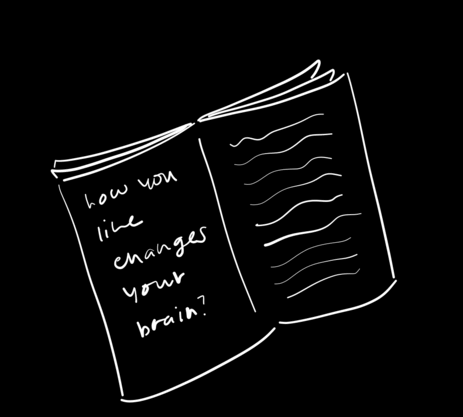 how you
like
changes
your
brain?